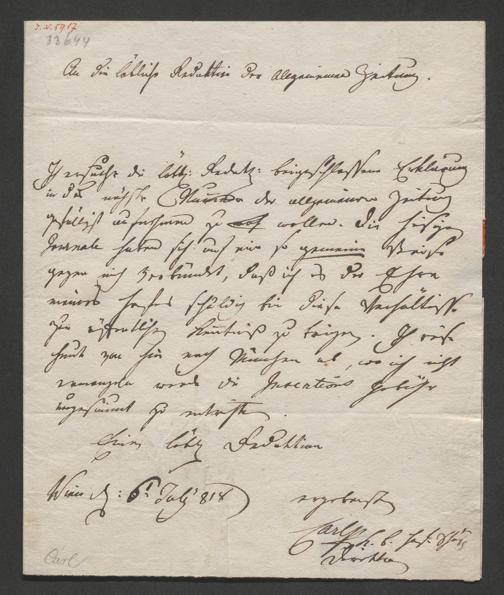 J. N. 5917
33644
An die löbliche Redaktion der Allgemeinen Zeitung.
Ich ersuche die löbl: Redakt: beigeschlossene Erklärung
in das nächste der allgemeinen Zeitung
gefälligst aufnehmen zu wollen. Die hiesigen
Journale haben sich auf eine so gemeine Weise
gegen mich verbündet, daß ich es der Ehre
meines schuldig bin diese Verhältnisse
zur öffentlichen Kenntniß zu bringen. Ich reise
heute von hier nach München ab, wo ich nicht
ermangeln werde die Insertions Gebühr
ungesäumt zu entrichten.
Einer löbl Redaktion
Wien d: 6t July 818
ergebenster
Carl k. b. Hof.
Direktor
Carl